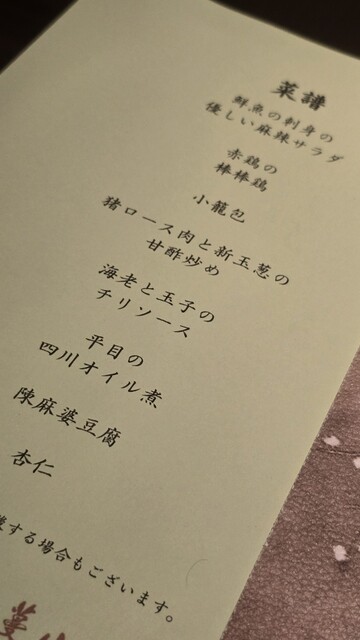 菜譜
鮮魚の刺身の
優しい麻辣サラダ
赤鶏の
棒棒鶏
小籠包
猪ロース肉と新玉葱の
甘酢炒め
海老と玉子の
チリソース
平目の
四川オイル煮
陳麻婆豆腐
杏仁
する場合もございます。